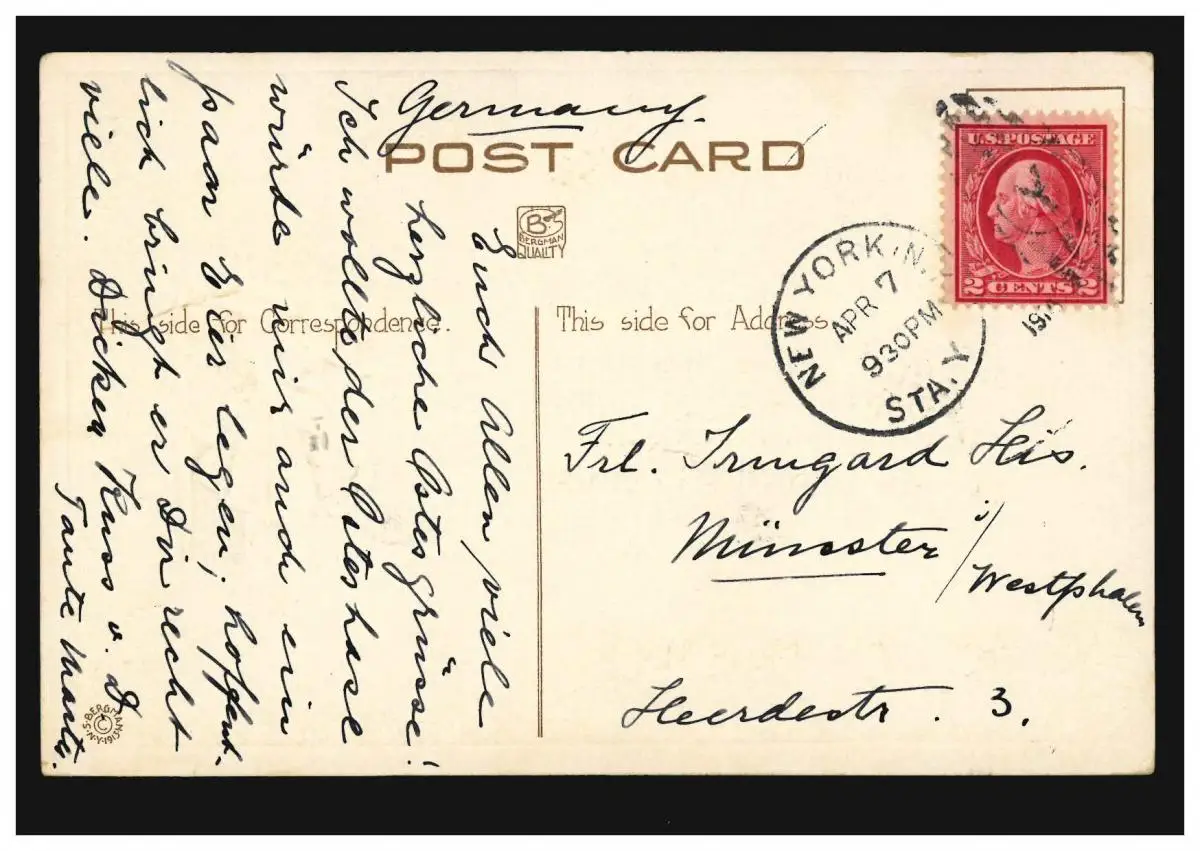 Germany.
POST CARD
B
BERGMAN
QUALITY
U.S. POSTAGE
2 CENTS 2
NEW YORK, N.
APR 7
930 PM
STA. Y
This side for Correspondence.
This side for Address.
Euch Allen viele
herzliche Ostergrüsse!
Ich wollte der Osterhase
würde mir auch ein
paar Eier legen; hoffent-
lich bringt er Dir recht
viele. Dicken Kuss v. D
Tante
Frl. Irmgard His.
Münster i/
Westphalen
Heerdestr. 3.
S. BERGMAN N.Y. 1913
©